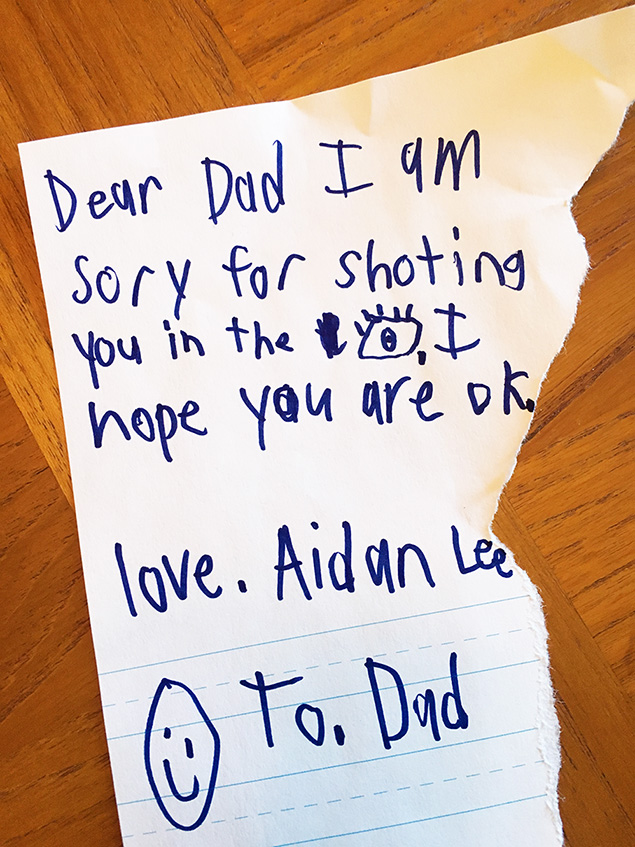 Dear Dad I am
sory for shoting
you in the . I
hope you are ok.
love. Aidan Lee
To. Dad